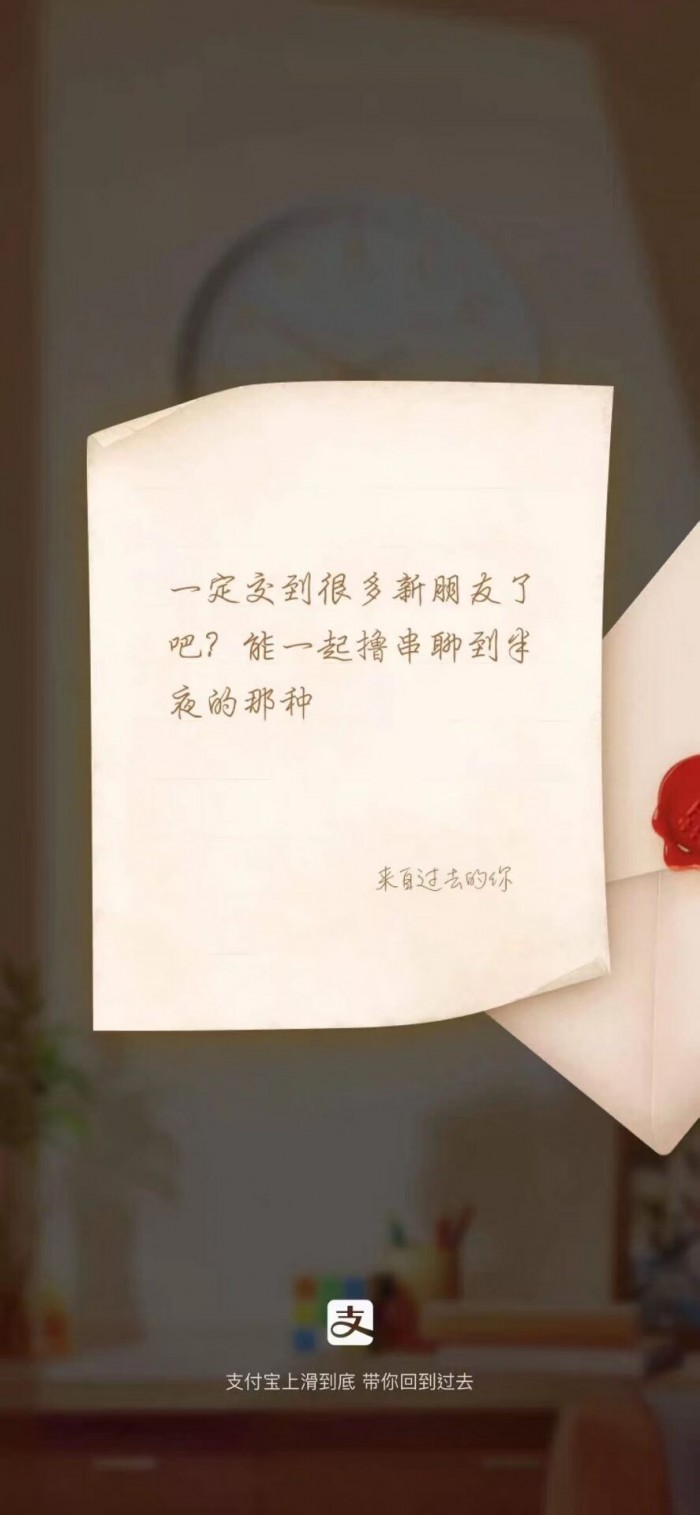 一定交到很多新朋友了
吧？能一起撸串聊到半
夜的那种
来自过去的你
支
支付宝上滑到底 带你回到过去